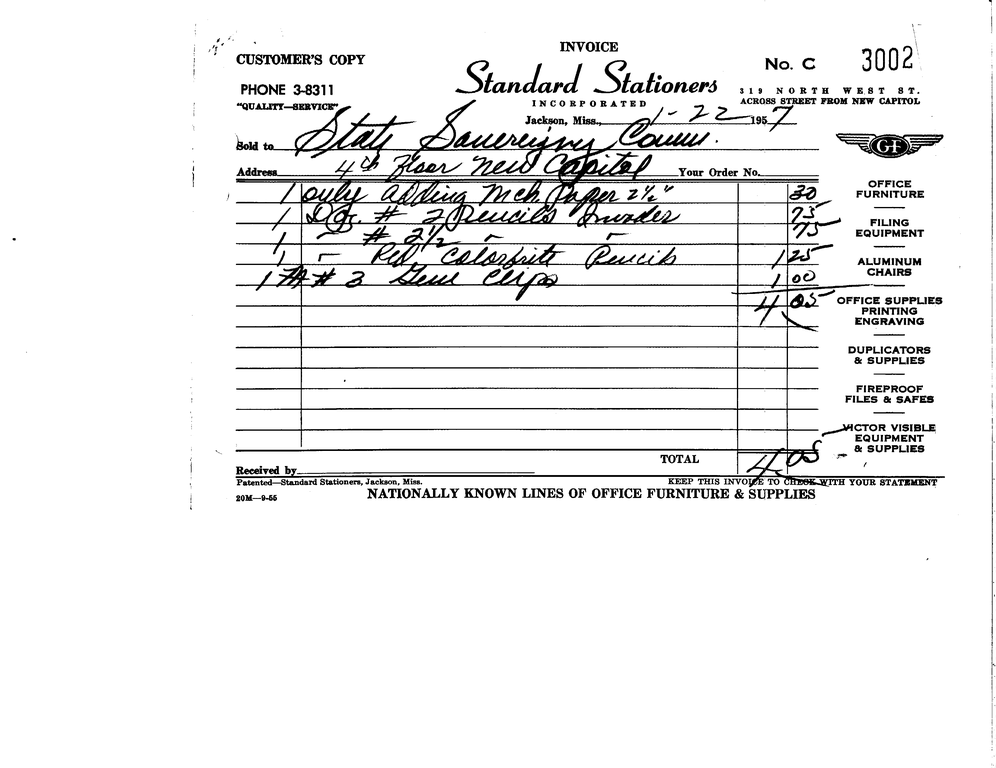 INVOICE
CUSTOMER'S COPY
No. C 3002
Standard Stationers
PHONE 3-8311
319 NORTH WEST ST.
"QUALITY—SERVICE"
INCORPORATED
ACROSS STREET FROM NEW CAPITOL
Jackson, Miss., 1-22 1957
Sold to State Sovereigny Comm.
Address 4th Floor New Capitol Your Order No.
1 only adding Mch. Paper 2½" 30
1 Doz. # 2 Pencils Invader 75
1 " # 2½ " " 75
1 " Red Colorbrite Pencils 1 25
1 M # 3 Gem Clips 1 00
4 05
TOTAL 4 05
Received by
Patented—Standard Stationers, Jackson, Miss.
KEEP THIS INVOICE TO CHECK WITH YOUR STATEMENT
20M—9-55
NATIONALLY KNOWN LINES OF OFFICE FURNITURE & SUPPLIES
GF
OFFICE
FURNITURE
FILING
EQUIPMENT
ALUMINUM
CHAIRS
OFFICE SUPPLIES
PRINTING
ENGRAVING
DUPLICATORS
& SUPPLIES
FIREPROOF
FILES & SAFES
VICTOR VISIBLE
EQUIPMENT
& SUPPLIES